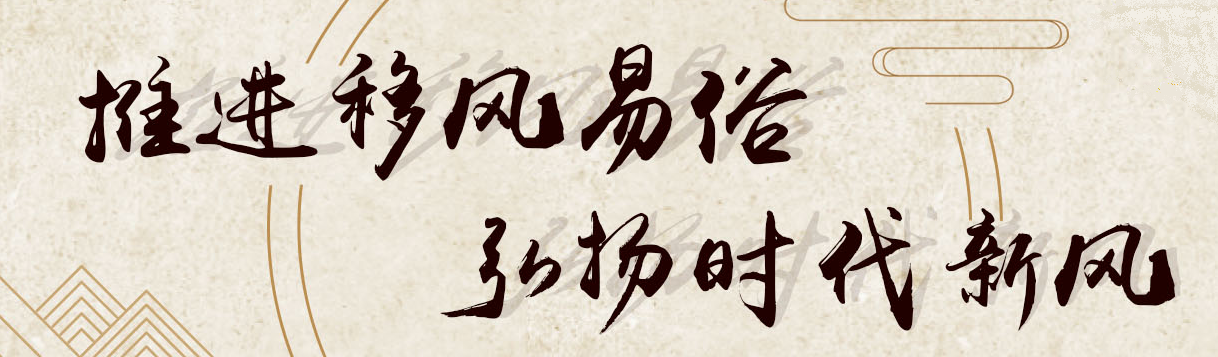 推进移风易俗
弘扬时代新风